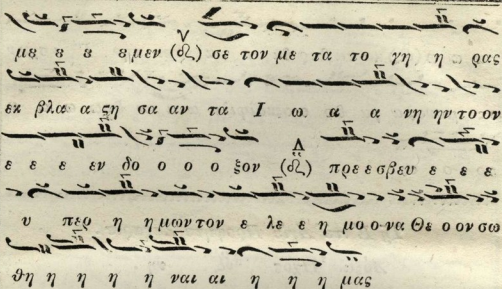 με ε ε ε μεν (ΩΛ) σε τον με τα το γη η ρας
εκ βλα α ςη σα αν τα Ι ω α α νη ην το ον
ε ε ε εν δο ο ο ο ξον (ΩΛ) πρε εσβευ ε ε ε
υ περ η η μων τον ε λε ε η μο ο να Θε ο ον σω
θη η η η η η ναι αι η η η μας